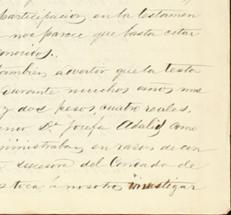 participacion, en la testamen
nos parece que basta estar
conocidos.
tambien a avertir que la testa
durante muchos años mas
y dos pesos cuatro reales.
Dª Josefa Adalid como
administraban, en razon de con
sucesion del Condado de
toca á nosotros investigar